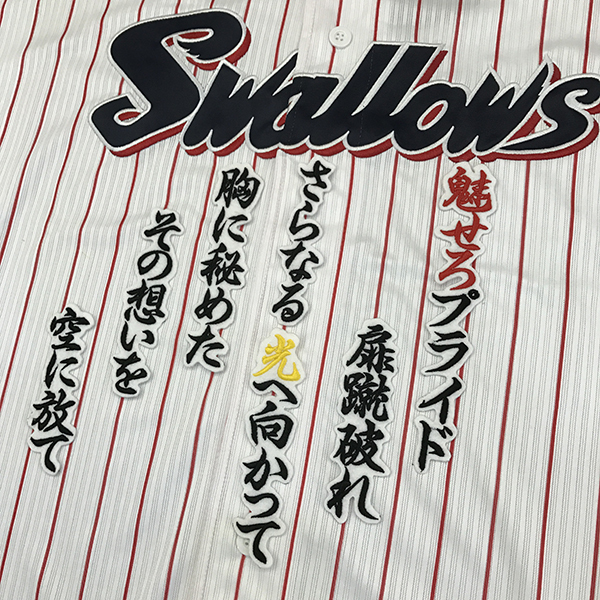 Swallows
魅せろプライド
扉蹴破れ
さらなる光へ向かって
胸に秘めた
その想いを
空に放て